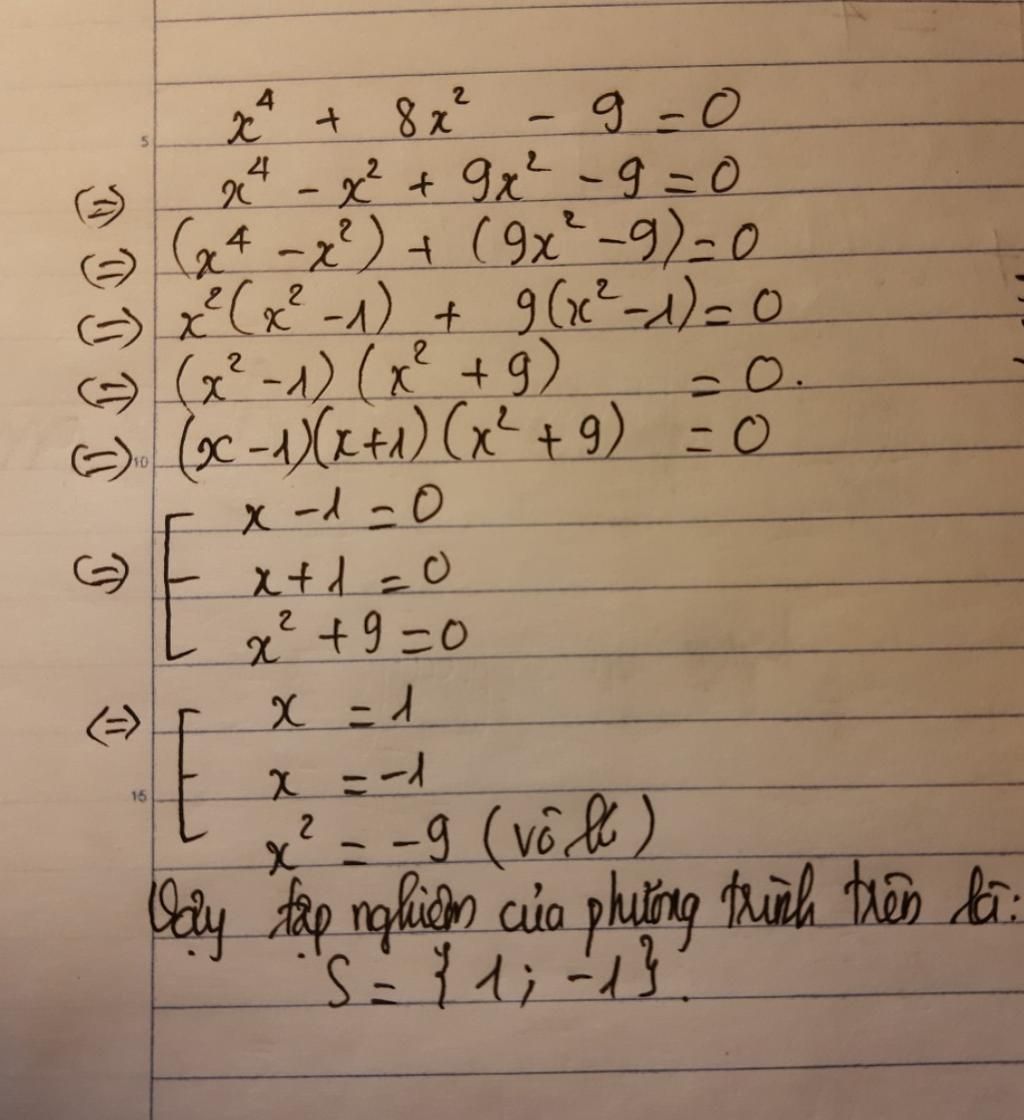 x⁴ + 8x² - 9 = 0
5
(=) x⁴ - x² + 9x² - 9 = 0
(=) (x⁴ - x²) + (9x² - 9) = 0
(=) x²(x² - 1) + 9(x² - 1) = 0
(=) (x² - 1)(x² + 9) = 0.
(=) 10 (x - 1)(x + 1)(x² + 9) = 0
x - 1 = 0
(=) x + 1 = 0
x² + 9 = 0
(=) x = 1
15 x = -1
x² = -9 (vô lí)
Vậy tập nghiệm của phương trình trên là:
S = { 1 ; -1 }.